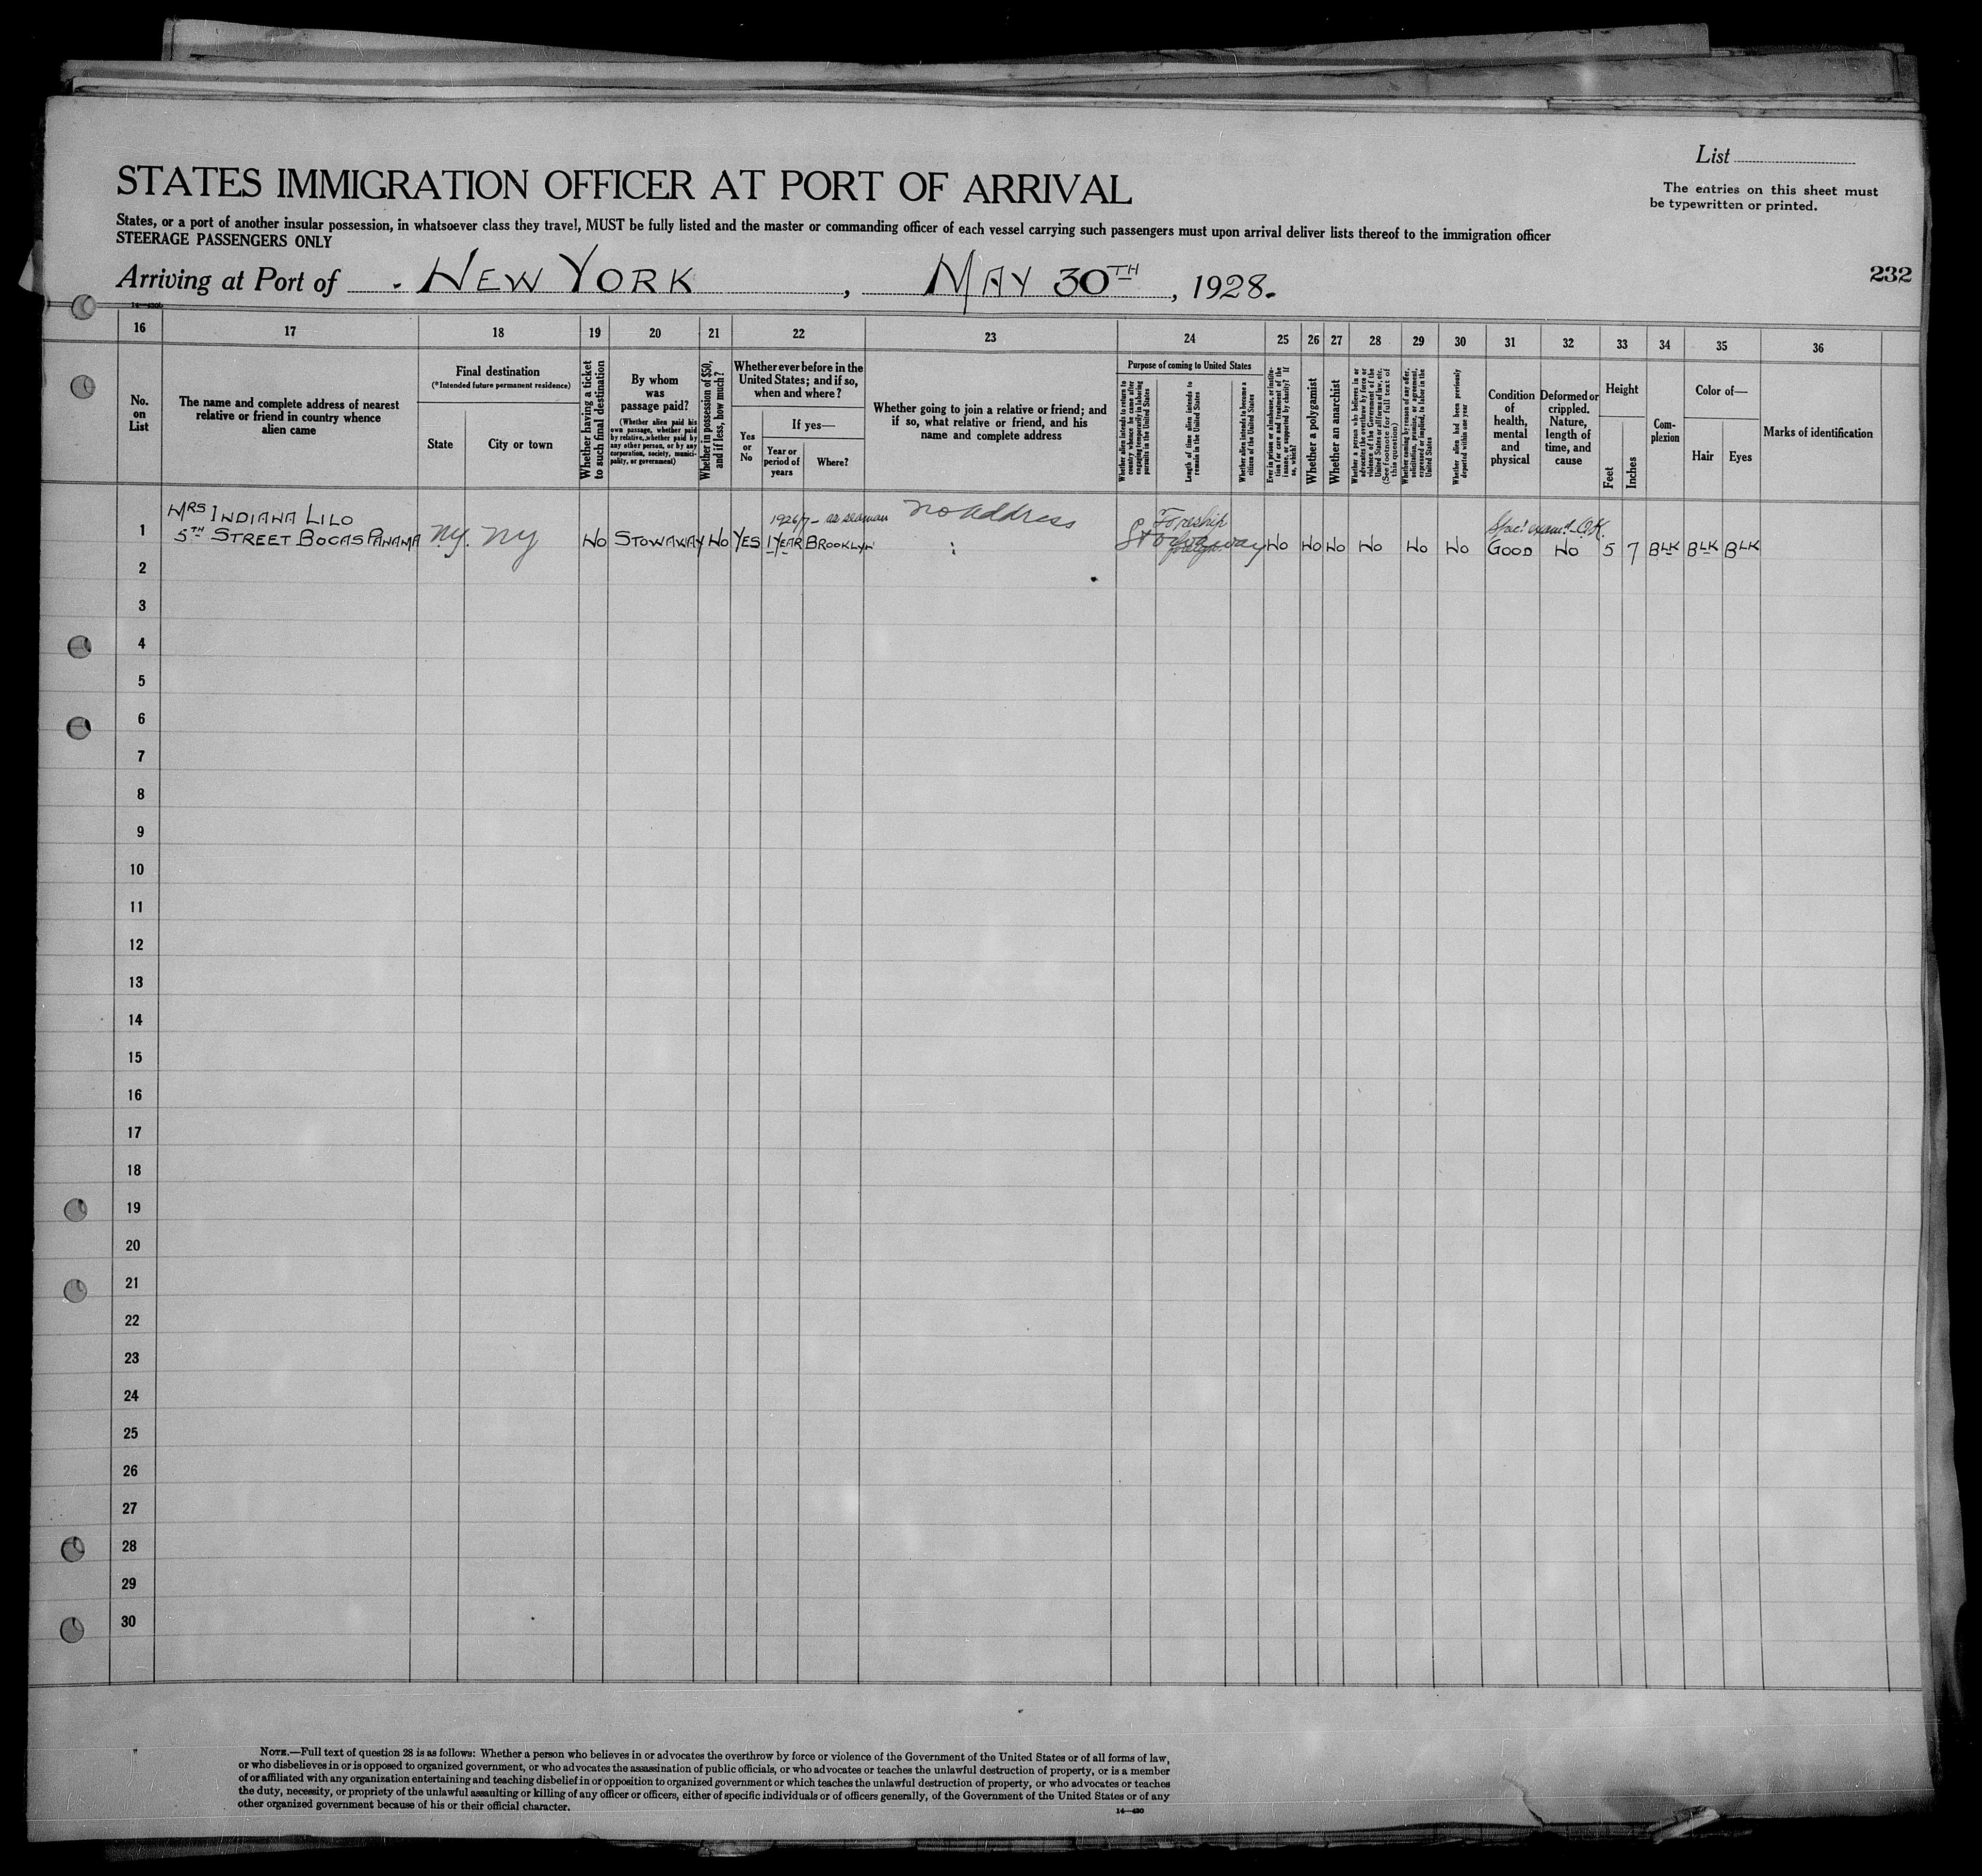 List
The entries on this sheet must
be typewritten or printed.
STATES IMMIGRATION OFFICER AT PORT OF ARRIVAL
States, or a port of another insular possession, in whatsoever class they travel, MUST be fully listed and the master or commanding officer of each vessel carrying such passengers must upon arrival deliver lists thereof to the immigration officer
STEERAGE PASSENGERS ONLY
Arriving at Port of NEW YORK, MAY 30TH, 1928.
232
14—430b
16 17 18 19 20 21 22 23 24 25 26 27 28 29 30 31 32 33 34 35 36
No.
on
List
The name and complete address of nearest
relative or friend in country whence
alien came
Final destination
(*Intended future permanent residence)
State
City or town
Whether having a ticket
to such final destination
By whom
was
passage paid?
(Whether alien paid his
own passage, whether paid
by relative, whether paid by
any other person, or by any
corporation, society, munici-
pality, or government)
Whether in possession of $50,
and if less, how much?
Whether ever before in the
United States; and if so,
when and where?
Yes
or
No
If yes—
Year or
period of
years
Where?
Whether going to join a relative or friend; and
if so, what relative or friend, and his
name and complete address
Purpose of coming to United States
Whether alien intends to return to
country whence he came after
engaging temporarily in laboring
pursuits in the United States
Length of time alien intends to
remain in the United States
Whether alien intends to become a
citizen of the United States
Ever in prison or almshouse, or institu-
tion for care and treatment of the
insane, or supported by charity? If
so, which?
Whether a polygamist
Whether an anarchist
Whether a person who believes in or
advocates the overthrow by force or
violence of the Government of the
United States or all forms of law, etc.
(See footnote for full text of
this question)
Whether coming by reason of any offer,
solicitation, promise, or agreement,
expressed or implied, to labor in the
United States
Whether alien had been previously
deported within one year
Condition
of
health,
mental
and
physical
Deformed or
crippled.
Nature,
length of
time, and
cause
Height
Feet
Inches
Com-
plexion
Color of—
Hair
Eyes
Marks of identification
MRS INDIANA LILO
1926/7 - as seaman
no address
1 5TH STREET BOCAS PANAMA NY. NY NO STOWAWAY NO YES 1 YEAR BROOKLYN Stowaway NO NO NO NO NO NO GOOD NO 5 7 BLK BLK BLK
2
3
4
5
6
7
8
9
10
11
12
13
14
15
16
17
18
19
20
21
22
23
24
25
26
27
28
29
30
NOTE.—Full text of question 28 is as follows: Whether a person who believes in or advocates the overthrow by force or violence of the Government of the United States or of all forms of law,
or who disbelieves in or is opposed to organized government, or who advocates the assassination of public officials, or who advocates or teaches the unlawful destruction of property, or is a member
of or affiliated with any organization entertaining and teaching disbelief in or opposition to organized government or which teaches the unlawful destruction of property, or who advocates or teaches
the duty, necessity, or propriety of the unlawful assaulting or killing of any officer or officers, either of specific individuals or of officers generally, of the Government of the United States or of any
other organized government because of his or their official character.
14—430